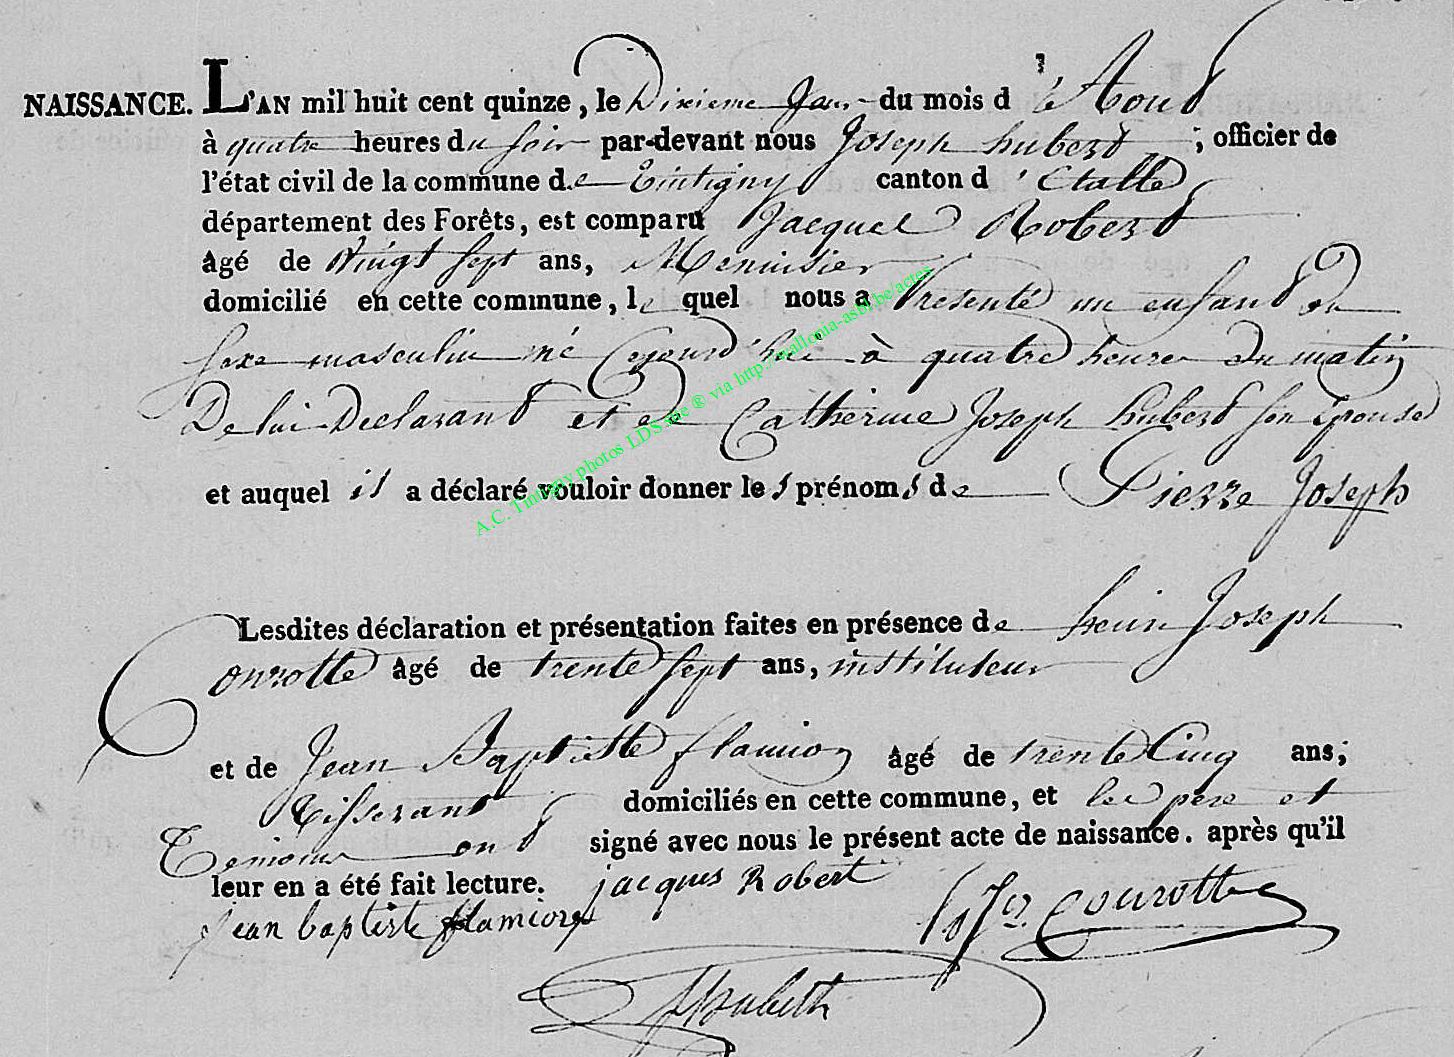 NAISSANCE. L'AN mil huit cent quinze, le Dixieme Jour du mois d'Aout
à quatre heures du soir par-devant nous Joseph hubert ; officier de
l'état civil de la commune de Tintigny canton d'Etalle
département des Forêts, est comparu Jacques Robert
âgé de Vingt sept ans, Menuisier
domicilié en cette commune, le quel nous a Presenté un enfant du
sexe masculin né Cejourd'hui à quatre heures du matin
De lui Declarant et de Catherine Joseph hubert son épouse
et auquel il a déclaré vouloir donner les prénoms de Pierre Joseph
Lesdites déclaration et présentation faites en présence de henri Joseph
Courotte âgé de trente sept ans, instituteur
et de Jean Baptiste flamion âgé de trente Cinq ans;
Tisserant domiciliés en cette commune, et les pere et
Temoins ont signé avec nous le présent acte de naissance. après qu'il
leur en a été fait lecture. jacques Robert
jean baptiste flamion Courotte
A.C. Tintigny photos LDS.sae ® via http://wallonia-asbl.be/actes